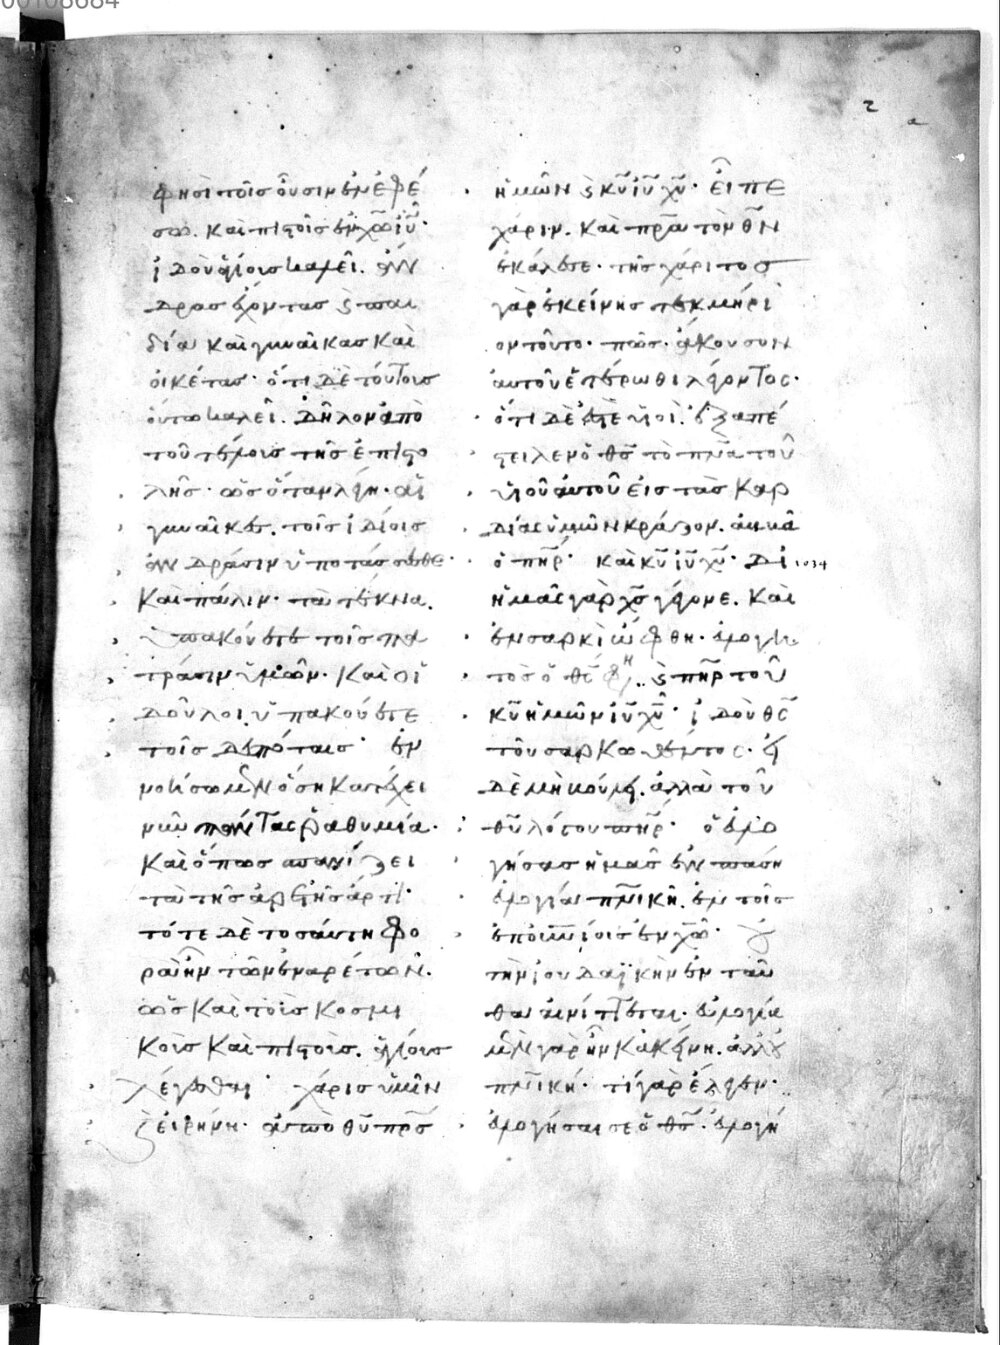 00108684
2
α
φησὶ τοῖς οὖσιν ἐν ἐφέ
σω. καὶ πιστοῖς ἐν χω ιυ·
ἰδοὺ ἁγίους καλεῖ. ἄν
δρας ἔχοντας ϛ παι
δία καὶ γυναῖκας καὶ
οἰκέτας· ὅτι δὲ τούτους
οὕτω καλεῖ. δῆλον ἀπὸ
τοῦ τέλους τῆς ἐπιστο
λῆς· ὡς ὅταν λέγη· αἱ
γυναῖκες. τοῖς ἰδίοις
ἀνδράσιν ὑποτάσσεσθε·
καὶ πάλιν· τὰ τέκνα.
ὑπακούετε τοῖς πα
τράσιν ὑμῶν· καὶ οἱ
δοῦλοι. ὑπακούετε
τοῖς δεσπόταις· ἐν
νοήσωμεν ὅση κατέχει
νῦν πάντας ῥαθυμία·
καὶ ὅπως σπανίζει
τὰ τῆς ἀρετῆς ἄρτι·
τότε δὲ τοσαύτη φο
ρὰ ἦν τῶν ἐναρέτων.
ὡς καὶ τοὺς κοσμι
κοὺς καὶ πιστοὺς. ἁγίους
λέγεσθαι· χάρις ὑμῖν
ϛ εἰρήνη· ἀπὸ θυ πρς
ἡμῶν ϛ κυ ιυ χυ· εἶπε
χάριν. καὶ πρα τὸν θν
ἐκάλεσε· τῆς χάριτος
γὰρ ἐκείνης τεκμήρι
ον τοῦτο· πῶς· ἄκουσον
αὐτοῦ ἑτέρωθι λέγοντος·
ὅτι δέ ἐστε υἱοὶ. ἐξαπέ
στειλεν ὁ θς τὸ πνα τοῦ
υἱοῦ αὐτοῦ εἰς τὰς καρ
δίας ὑμῶν κράζον. ἀββᾶ
ὁ πηρ· καὶ κυ ιυ χυ· δι
ἡμᾶς γὰρ χς γέγονε. καὶ
ἐν σαρκὶ ὤφθη· εὐλογη
τὸς ὁ θς φη.. ϛ πηρ τοῦ
κυ ἡμῶν ιυ χυ· ἰδοὺ θς
τοῦ σαρκωθέντος· εἰ
δὲ μὴ βούλει. ἀλλὰ τοῦ
θυ λόγου πηρ· ὁ εὐλο
γήσας ἡμᾶς ἐν πάση
εὐλογία πνικῆ. ἐν τοῖς
ἐπουνίοις ἐν χω·
τὴν ἰουδαϊκὴν ἐνταῦ
θα αἰνίττεται. εὐλογία
μὲν γὰρ ἦν κἀκείνη. ἀλλ οὐ
πνικὴ· τί γὰρ ἔλεγεν·
εὐλογήσαι σε ὁ θς· εὐλογή